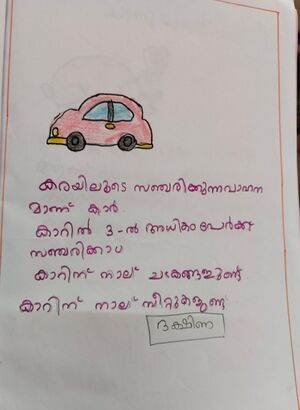 കരയിലൂടെ സഞ്ചരിക്കുന്നവാഹന
മാണ് കാർ
കാറിൽ 3-ൽ അധികം പേർക്ക്
സഞ്ചരിക്കാം
കാറിന് നാല് ചക്രങ്ങളുണ്ട്
കാറിന് നാല് സീറ്റുകളുണ്ട്
ദക്ഷിണ